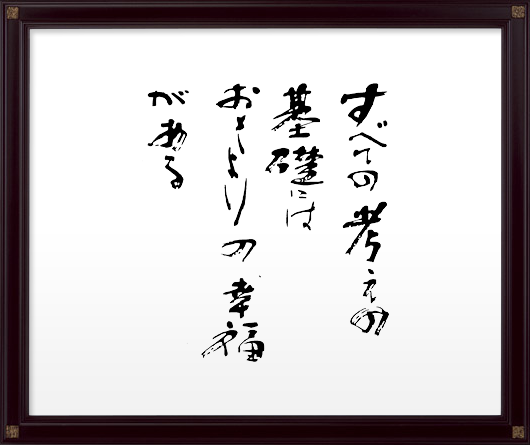 すべての考えの
基礎には
おとしよりの幸福
がある